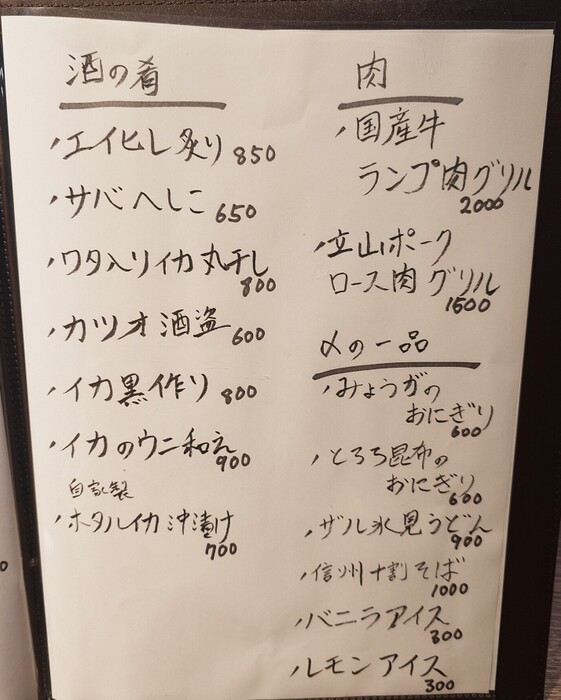 酒の肴
・エイヒレ炙り 850
・サバへしこ 650
・ワタ入りイカ丸干し
800
・カツオ酒盗 600
・イカ黒作り 800
・イカのウニ和え
900
自家製
・ホタルイカ沖漬け
700
肉
・国産牛
ランプ肉グリル
2000
・立山ポーク
ロース肉グリル
1500
〆の一品
・みょうがの
おにぎり
600
・とろろ昆布の
おにぎり
600
・ザル氷見うどん
900
・信州十割そば
1000
・バニラアイス
300
・レモンアイス
300